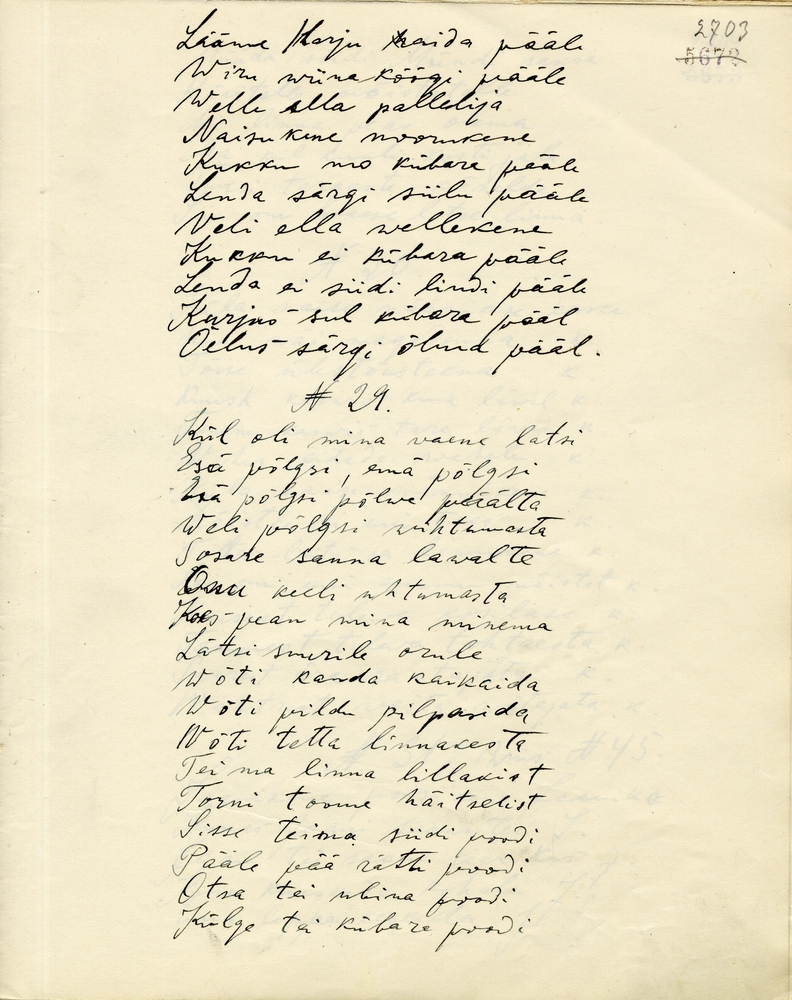 2703
5672
Lääne Harju haida pääle
Wiru wiina köögi pääle
Welle ella pallelija
Naisukene noorukene
Kukku mo kübara pääle
Lenda särgi siilu pääle
Veli ella wellekene
Kukku ei kübara pääle
Lenda ei siidi lindi pääle
Kurjus sul kübara pääl
Öelus särgi õlma pääl.
N 29.
Kül oli mina vaene latsi
Esä põlgsi, emä põlgsi
Esä põlgsi põlwe päälta
Weli põlgsi wihtumasta
Sosare sanna lawalte
Onu keeli uhtumasta
Koes pean mina minema
Lätsi suurile orule
Wõti kanda kaikaida
Wõti pildu pilpasida
Wõti tetta linnakesta
Tei ma linna lillakist
Torni toome häitselist
Sisse teima siidi poodi
Pääle pää rätti poodi
Otsa tei ubina poodi
Külge tei kübare poodi